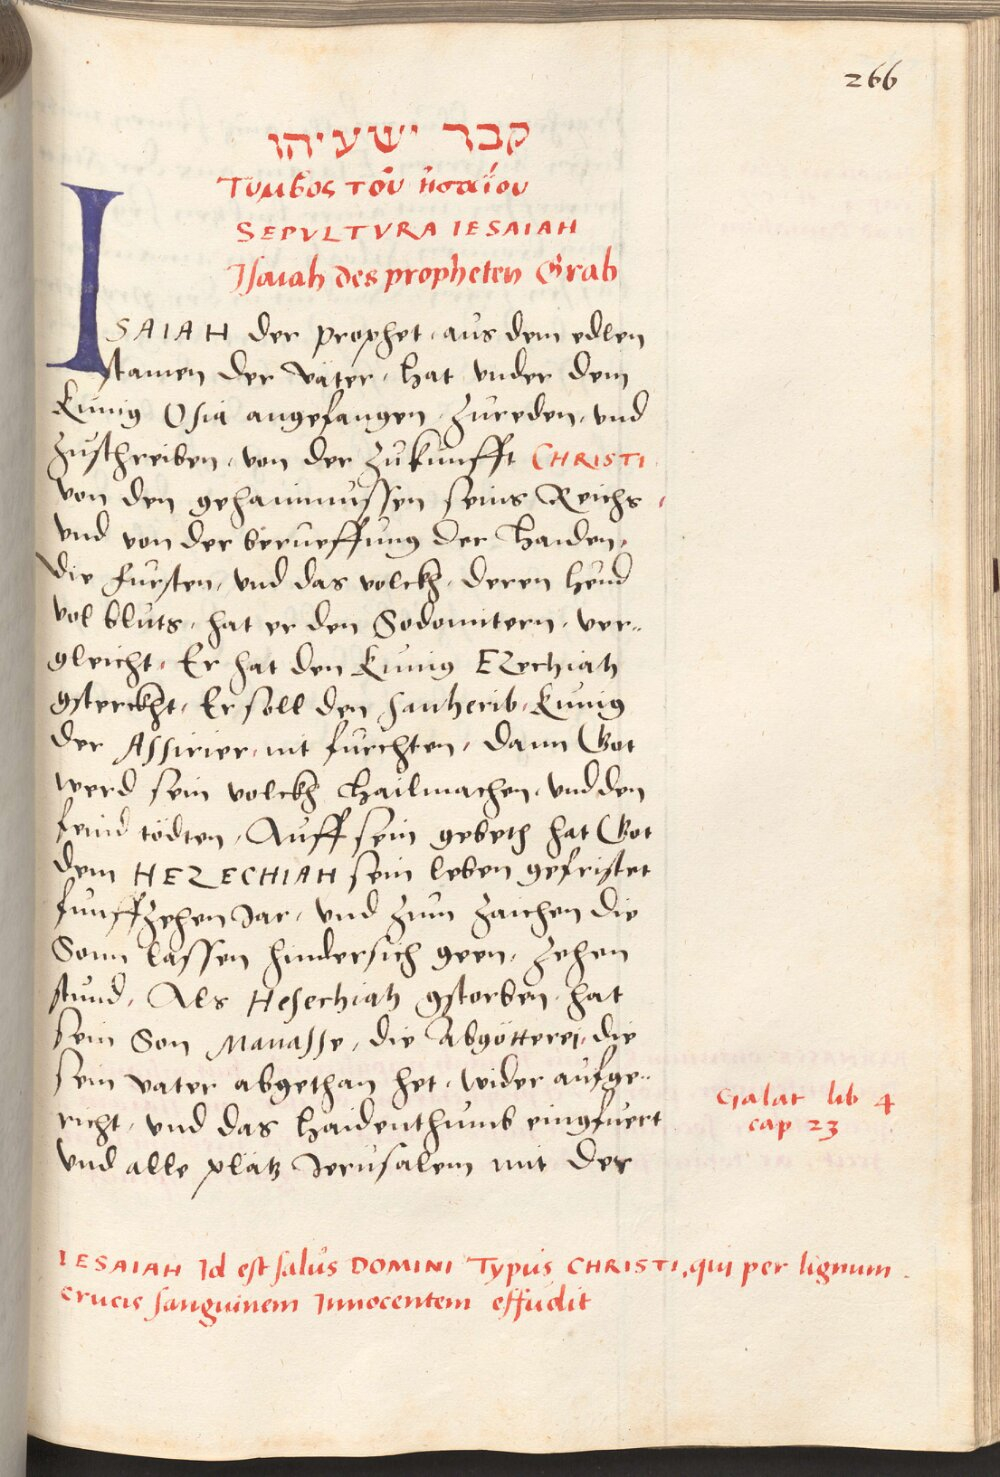 266
קבר ישעיהו
Τύμβος τοῦ ἡσαΐου
SEPVLTVRA IESAIAH
Jsaiah des propheten Grab
ISAIAH der prophet, aus dem edlen
stamen der väter, hat vnder dem
Kunig Osia angefangen, zureden, vnd
zuschreiben, von der zukunfft CHRISTI
von den gehaimnussen seins Reichs,
vnd von der berueffung der Haiden,
die fursten, vnd das volckh, deren hend
vol bluts, hat er den Sodomitern, ver„
gleicht, Er hat den Kunig EZechiah
gsterckht, Er soll den Sanherib, Kunig
der Assirier, nit furchten, dann Got
werd sein volckh Hailmachen, vnd den
feind tödten, Auff sein gebeth hat Got
dem HEZECHIAH sein leben gefristet
funffzehen Jar, vnd zum zaichen die
Sonn lassen hindersich geen, zehen
stund, Als Hesechiah gstorben, hat
sein Son Manasse, die Abgötterei, die
sein vater abgethan het, wider aufge„
richt, vnd das Haidenthumb eingfuert
vnd alle plätz Jerusalem mit der
Galat lib 4
cap 23
IESAIAH Id est salus DOMINI Typus CHRISTI, qui per lignum
crucis sanguinem Innocentem effudit